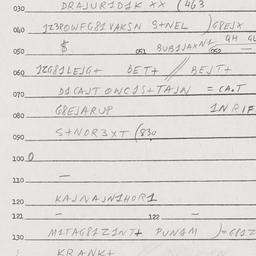 030 DRAJUR1D1K XX (463
040 JZ3ROWFG81VAKSN S+NEL )G8EJX
$ QH
050 051 8UB1JAXN+ 052 —
060 1ZG81LEJG+ BET+ // BEJT+
070 D1CAJT OWC1S+TAJN = CA.T
080 G8EJARUP 1NRIF
090 S+NOR3XT (830
100 0
110 —
120 KAJNAJN1HOR1
121 — 122 —
130 M1TAG81Z1NT+ PUNGM
KRANK+